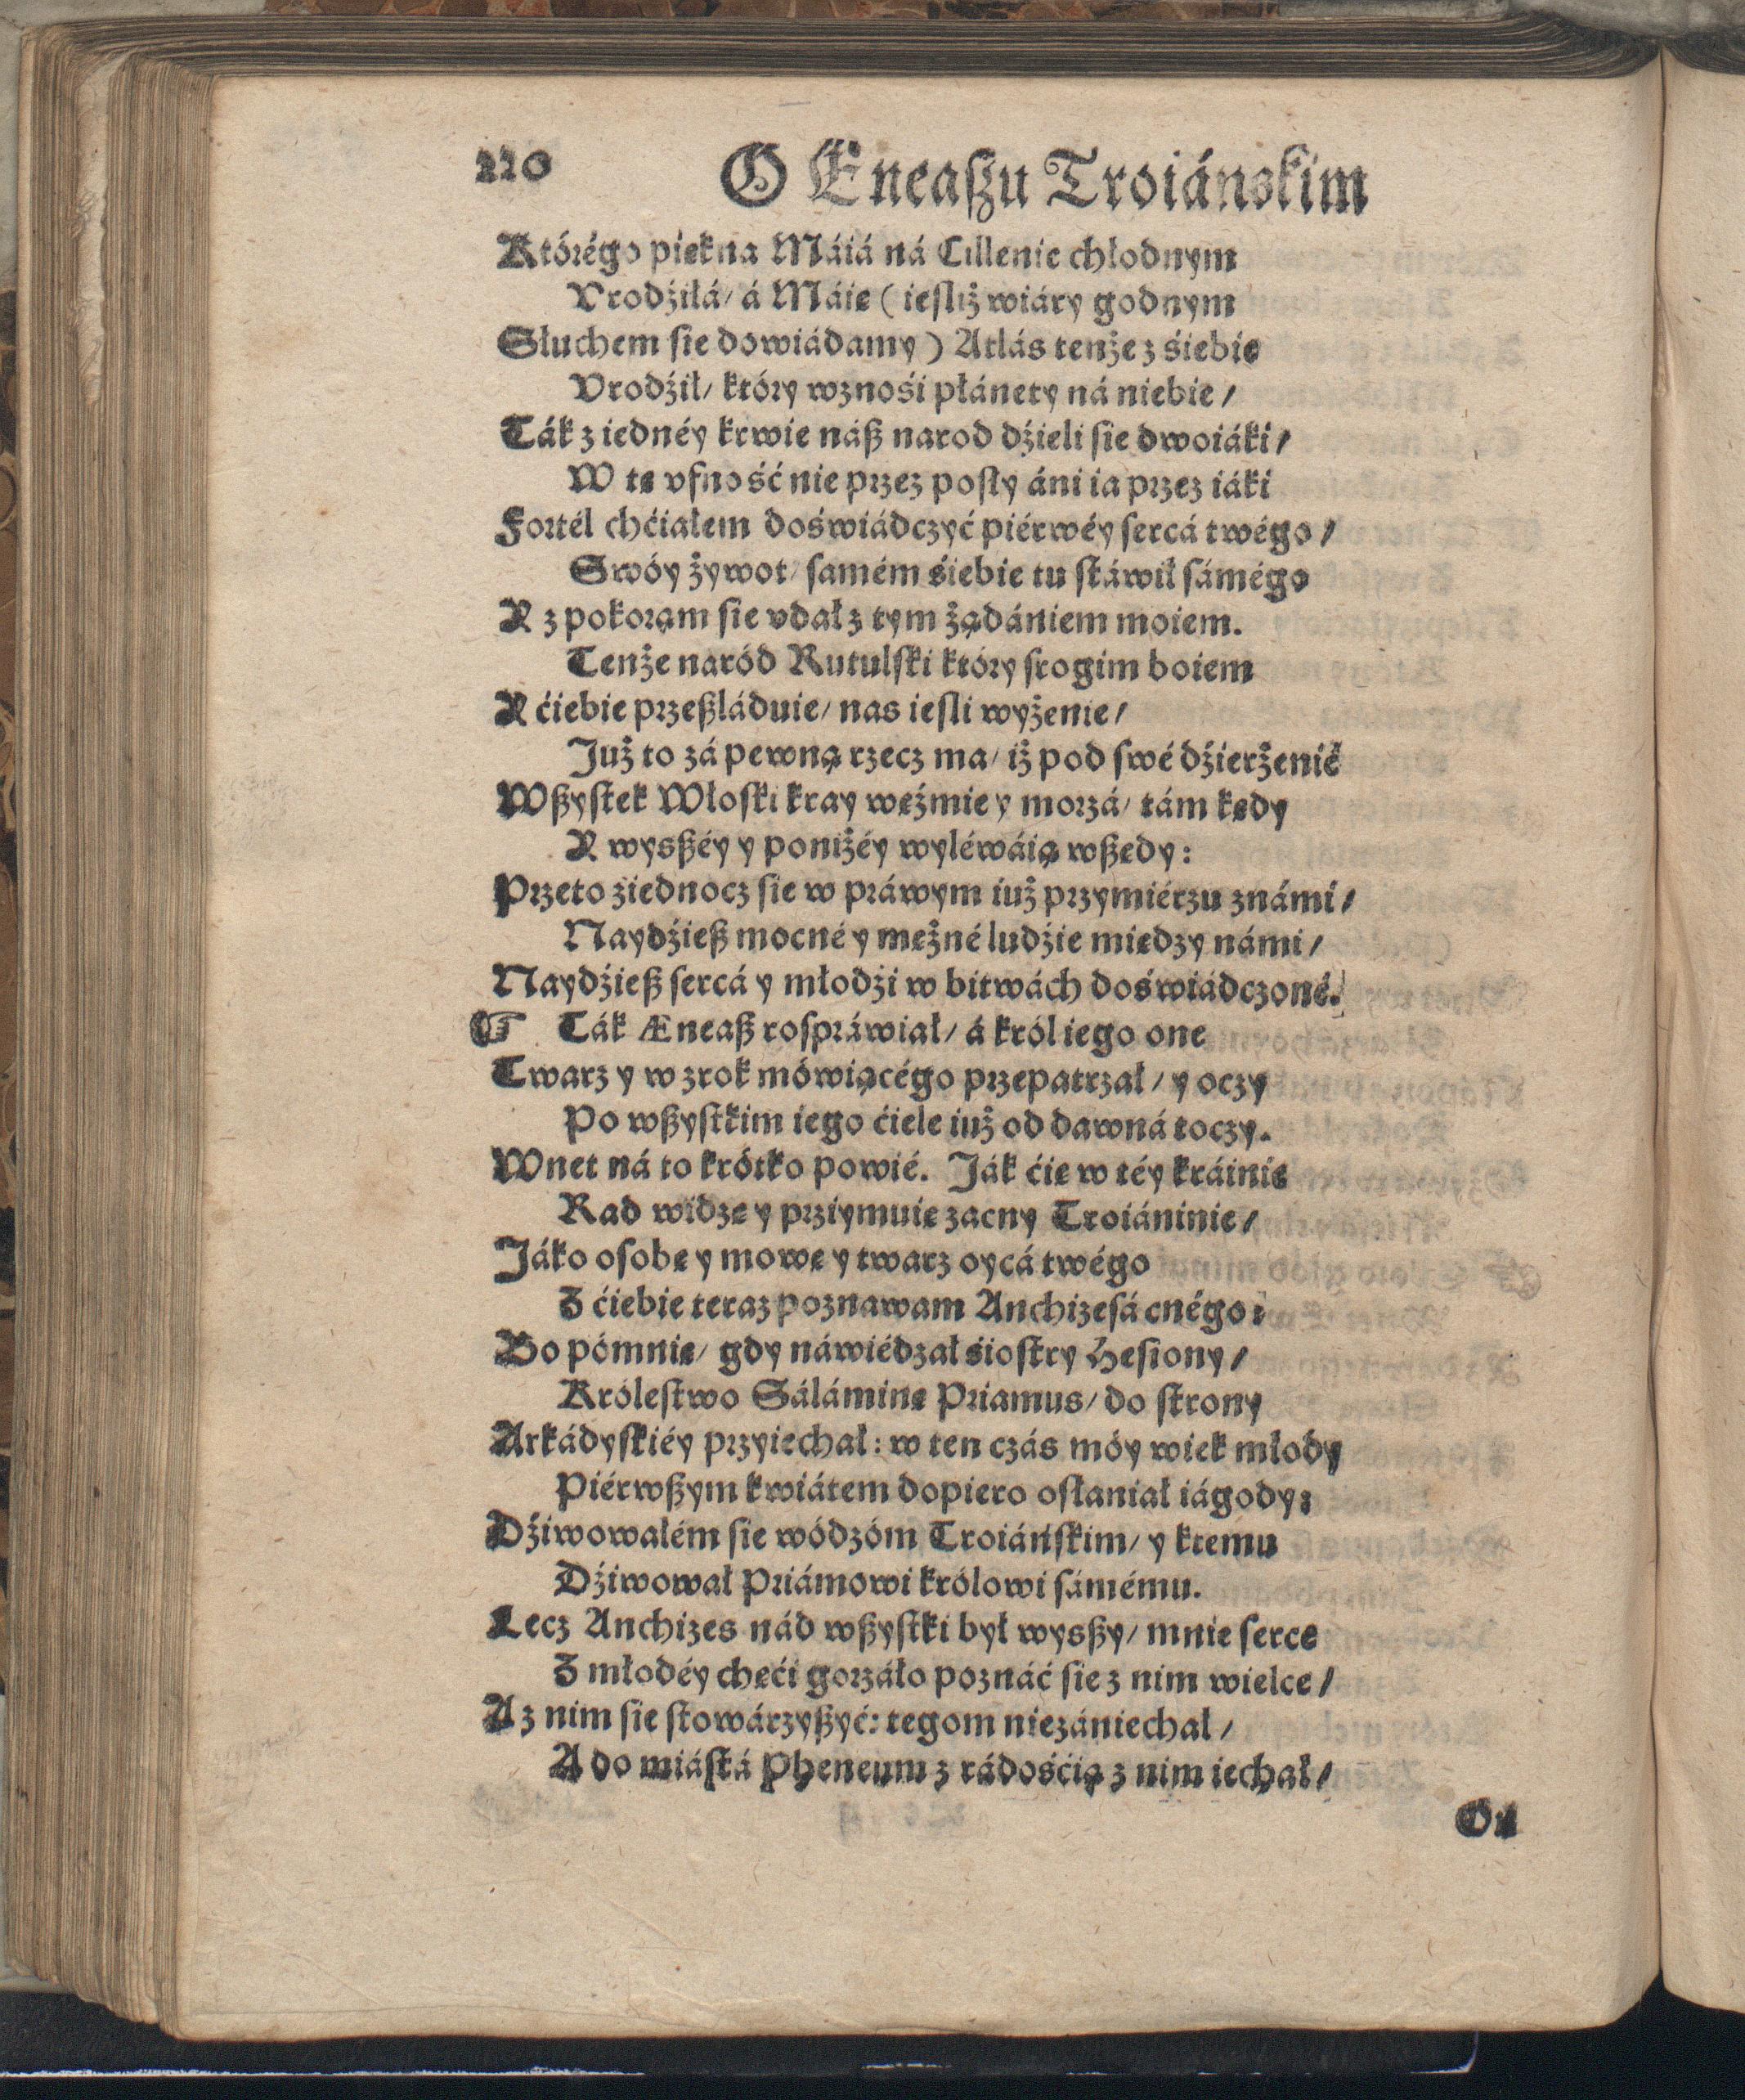 220 O Eneaſzu Troiánskim
Którégo piękna Máiá ná Cillenie chłodnym
Vrodźiłá/ á Máię (ieſliż wiáry godnym
Słuchem ſie dowiádamy) Atlás tenże z śiebie
Vrodźił/ który wznośi płánety ná niebie/
Ták z iednéy krwie náß narod dźieli ſie dwoiáki/
W tę vfność nie przez poſły áni ia przez iáki
Fortél chćiałem doświádczyć piérwéy ſercá twégo/
Swóy żywot/ ſamém śiebie tu ſtáwił ſámégo
Y z pokorąm ſie vdał z tym żądániem moiem.
Tenże naród Rutulſki który ſrogim boiem
Y ćiebie przeßláduie/ nas ieſli wyżenie/
Już to zá pewną rzecz ma/ iż pod ſwé dźierżenié
Wßyſtek Włoſki kray weźmie y morzá/ tám kędy
Y wysßéy y poniżéy wyléwáią wßędy:
Przeto ziednocz ſie w práwym iuż przymiérzu známi/
Naydźieß mocné y mężné ludźie miedzy námi/
Naydźieß ſercá y młodźi w bitwách doświádczoné.
☞ Ták Æneaß roſpráwiał/ á król iego one
Twarz y wzrok mówiącégo przepatrzał/ y oczy
Po wßyſtkim iego ćiele iuż od dawná toczy.
Wnet ná to krótko powié. Ják ćię w téy kráinie
Rad widzę y prziymuię zacny Troiáninie/
Jáko oſobę y mowę y twarz oycá twégo
Z ćiebie teraz poznawam Anchizeſá cnégo:
Bo pómnię/ gdy náwiédzał śioſtry Heſiony/
Króleſtwo Sáláminę Priamus/ do ſtrony
Arkádyſkiéy przyiechał: w ten czás móy wiek młody
Piérwßym kwiátem dopiero oſłaniał iágody:
Dźiwowałém ſie wódzóm Troiáńſkim/ y ktemu
Dźiwował Priámowi królowi ſámému.
Lecz Anchizes nád wßyſtki był wysßy/ mnie ſerce
Z młodéy chęći gorzáło poznáć ſie z nim wielce/
A z nim ſie ſtowárzyßyć: tegom niezániechał/
A do miáſtá Pheneum z rádośćią z nim iechał/
On